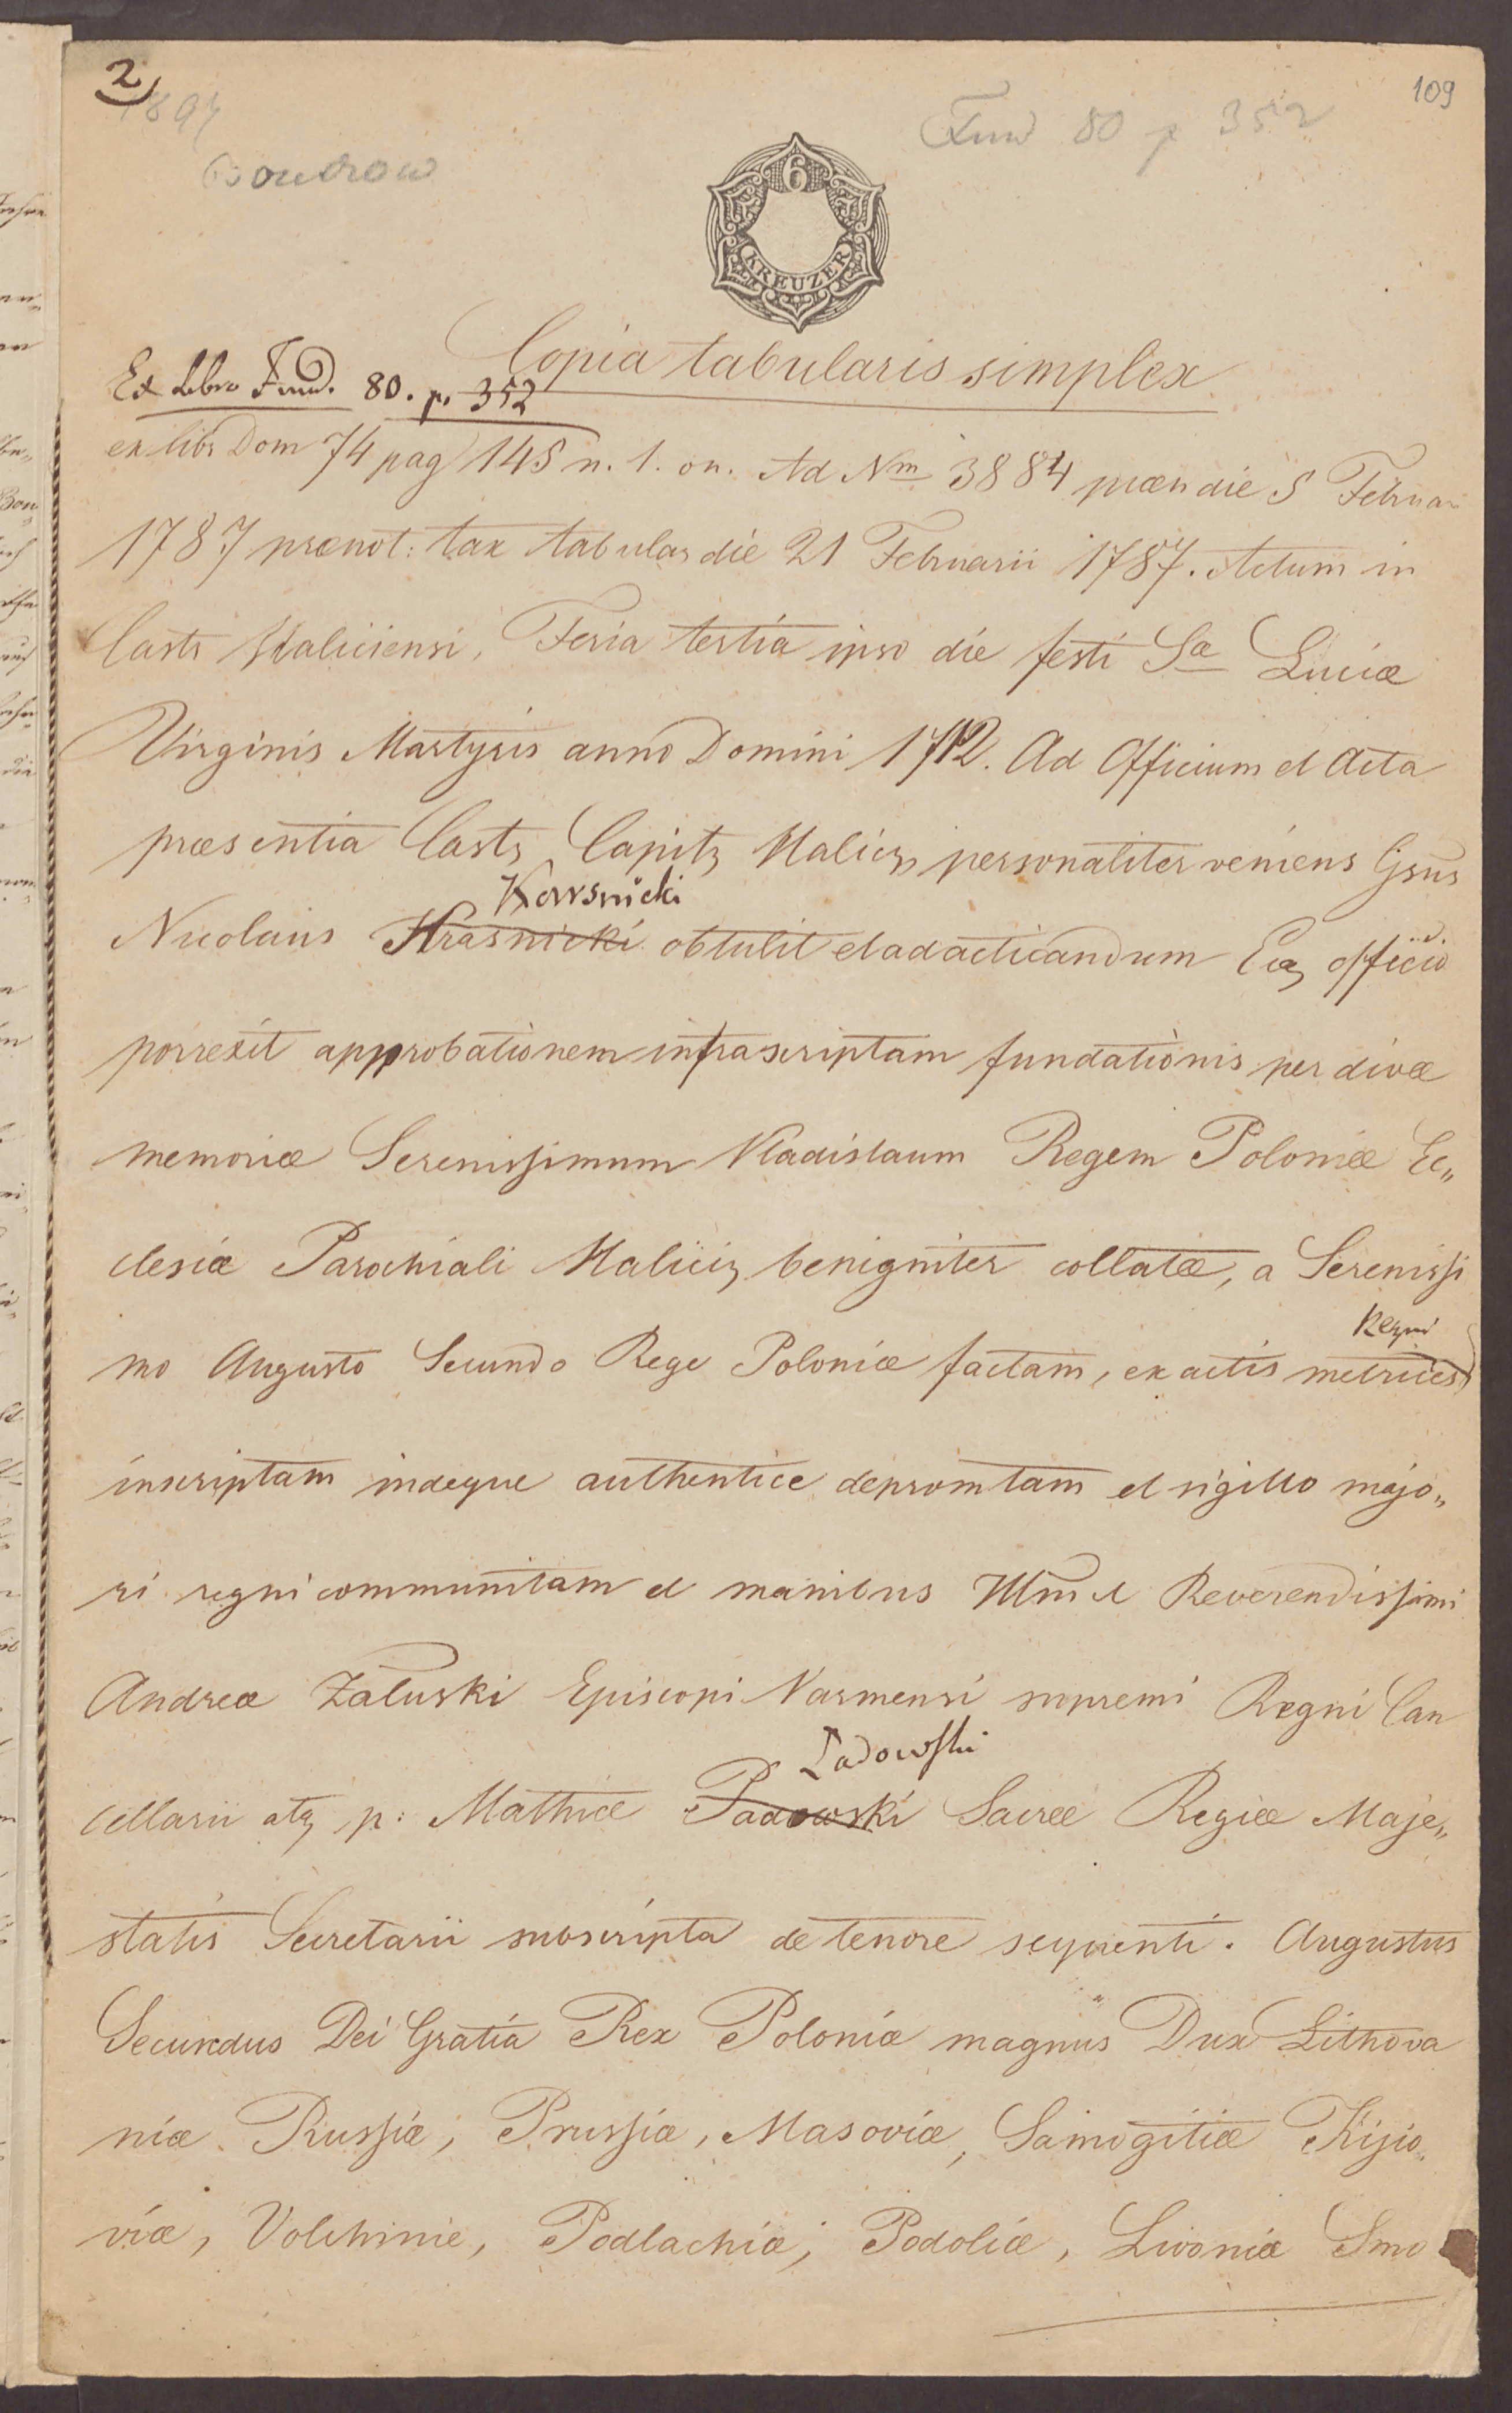 2
109
Fund 80 p 352
6
KREUZER
Copia tabularis simplex
Ex Libro Fund. 80. p. 352
ex libr Dom 74 pag 145 n. 1. on. Ad Nm 3884 præs die 5 Februar
1787 prænot: tax tabular die 21 Februarii 1787. Actum in
Castr Haliciensi, Feria tertia ipso die festi Sæ Luciæ
Virginis Martyris anno Domini 1712. Ad Officium et Acta
præsentia Castr Capitz Halicz personaliter veniens Gsus
Korrsnicki
Nicolaus Hrasnicki obtulit et ad acticandum officio
porrexit approbationem infrascriptam fundationis per divæ
memoriæ Serenissimum Vladislaum Regem Poloniæ Ec„
clesiæ Parochiali Haliciz benigniter collatæ, a Serenissi
Regni
mo Augusto Secundo Rege Poloniæ factam, ex actis metrices
inscriptam indeque authentice depromtam et sigillo majo„
ri regni communitam et manibus Illm et Reverendissimi
Andreæ Załuski Episcopi Varmensi supremi Regni Can
Ladowski
cellarii atq p: Mathiæ Padowski Sacræ Regiæ Maje„
statis Secretarii subscripta de tenore sequenti. Augustus
Secundus Dei Gratia Rex Poloniæ magnus Dux Lithova
niæ Russiæ, Prussiæ, Masoviæ, Samogitiæ Kijio„
viæ, Volchinie, Podlachiæ, Podoliæ, Livoniæ Smo